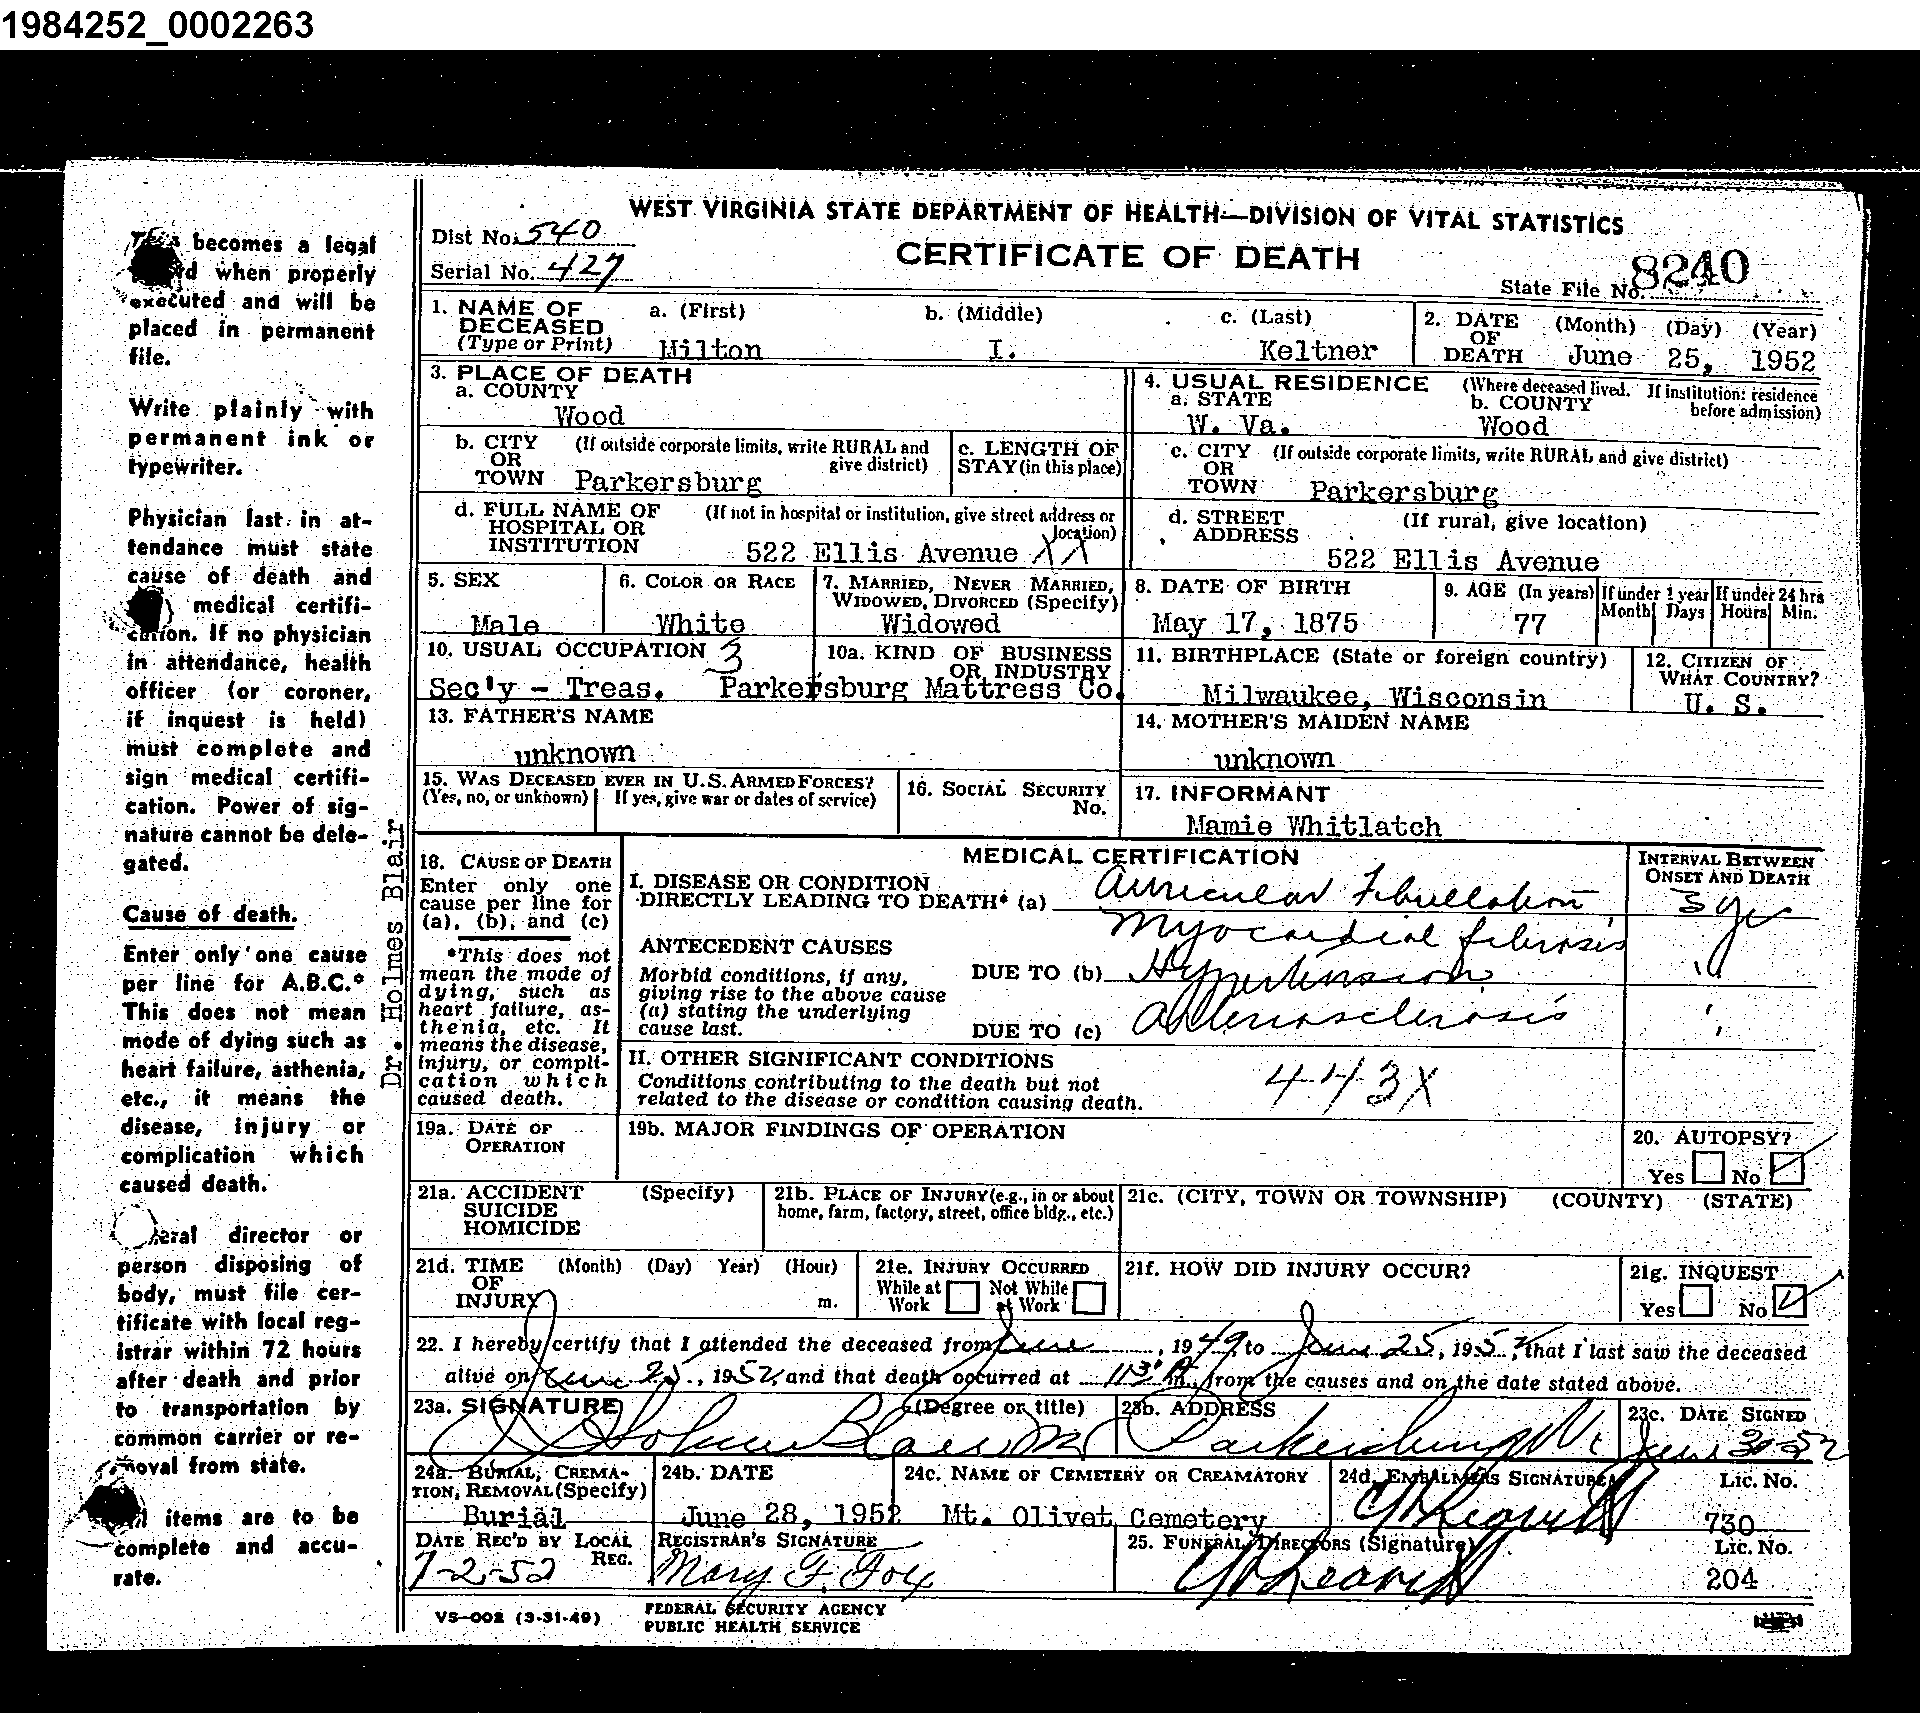 1984252_0002263
WEST VIRGINIA STATE DEPARTMENT OF HEALTH—DIVISION OF VITAL STATISTICS
CERTIFICATE OF DEATH
Dist No. 540
Serial No. 427
State File No. 8240
1. NAME OF DECEASED (Type or Print) a. (First) b. (Middle) c. (Last)
Milton I. Keltner
2. DATE OF DEATH (Month) (Day) (Year)
June 25, 1952
3. PLACE OF DEATH
a. COUNTY
Wood
4. USUAL RESIDENCE (Where deceased lived. If institution: residence before admission)
a. STATE b. COUNTY
W. Va. Wood
b. CITY OR TOWN (If outside corporate limits, write RURAL and give district)
Parkersburg
c. LENGTH OF STAY (in this place)
c. CITY OR TOWN (If outside corporate limits, write RURAL and give district)
Parkersburg
d. FULL NAME OF HOSPITAL OR INSTITUTION (If not in hospital or institution, give street address or location)
522 Ellis Avenue XX
d. STREET ADDRESS (If rural, give location)
522 Ellis Avenue
5. SEX
Male
6. COLOR OR RACE
White
7. MARRIED, NEVER MARRIED, WIDOWED, DIVORCED (Specify)
Widowed
8. DATE OF BIRTH
May 17, 1875
9. AGE (In years)
77
If under 1 year Month Days
If under 24 hrs Hours Min.
10. USUAL OCCUPATION 3
Sec'y - Treas.
10a. KIND OF BUSINESS OR INDUSTRY
Parkersburg Mattress Co.
11. BIRTHPLACE (State or foreign country)
Milwaukee, Wisconsin
12. CITIZEN OF WHAT COUNTRY?
U. S.
13. FATHER'S NAME
unknown
14. MOTHER'S MAIDEN NAME
unknown
15. WAS DECEASED EVER IN U.S. ARMED FORCES?
(Yes, no, or unknown) If yes, give war or dates of service)
16. SOCIAL SECURITY No.
17. INFORMANT
Mamie Whitlatch
18. CAUSE OF DEATH
Enter only one cause per line for (a), (b), and (c)
*This does not mean the mode of dying, such as heart failure, asthenia, etc. It means the disease, injury, or complication which caused death.
MEDICAL CERTIFICATION
INTERVAL BETWEEN ONSET AND DEATH
I. DISEASE OR CONDITION DIRECTLY LEADING TO DEATH* (a) Auricular Fibrillation 3 yr
Myocardial fibrosis
ANTECEDENT CAUSES
Morbid conditions, if any, giving rise to the above cause (a) stating the underlying cause last.
DUE TO (b) Hypertension "
DUE TO (c) Arteriosclerosis "
II. OTHER SIGNIFICANT CONDITIONS
Conditions contributing to the death but not related to the disease or condition causing death.
443X
19a. DATE OF OPERATION
19b. MAJOR FINDINGS OF OPERATION
20. AUTOPSY?
Yes No
21a. ACCIDENT SUICIDE HOMICIDE (Specify)
21b. PLACE OF INJURY (e.g., in or about home, farm, factory, street, office bldg., etc.)
21c. (CITY, TOWN OR TOWNSHIP) (COUNTY) (STATE)
21d. TIME OF INJURY (Month) (Day) Year) (Hour) m.
21e. INJURY OCCURRED
While at Work Not While at Work
21f. HOW DID INJURY OCCUR?
21g. INQUEST
Yes No
22. I hereby certify that I attended the deceased from June, 1949, to June 25, 1952, that I last saw the deceased
alive on June 25, 1952, and that death occurred at m., from the causes and on the date stated above.
23a. SIGNATURE (Degree or title)
J Holmes Blair MD
23b. ADDRESS
Parkersburg W.
23c. DATE SIGNED
June 30-52
24a. BURIAL, CREMATION, REMOVAL (Specify)
Burial
24b. DATE
June 28, 1952
24c. NAME OF CEMETERY OR CREAMATORY
Mt. Olivet Cemetery
24d. EMBALMERS SIGNATURE Lic. No.
730
DATE REC'D BY LOCAL REG.
7-2-52
REGISTRAR'S SIGNATURE
Mary F. Fox
25. FUNERAL DIRECTORS (Signature) Lic. No.
204
VS-002 (3-31-49)
FEDERAL SECURITY AGENCY
PUBLIC HEALTH SERVICE
Dr. Holmes Blair
becomes a legal
when properly
executed and will be
placed in permanent
file.
Write plainly with
permanent ink or
typewriter.
Physician last in at-
tendance must state
cause of death and
medical certifi-
cation. If no physician
in attendance, health
officer (or coroner,
if inquest is held)
must complete and
sign medical certifi-
cation. Power of sig-
nature cannot be dele-
gated.
Cause of death.
Enter only one cause
per line for A.B.C.*
This does not mean
mode of dying such as
heart failure, asthenia,
etc., it means the
disease, injury or
complication which
caused death.
director or
person disposing of
body, must file cer-
tificate with local reg-
istrar within 72 hours
after death and prior
to transportation by
common carrier or re-
moval from state.
items are to be
complete and accu-
rate.